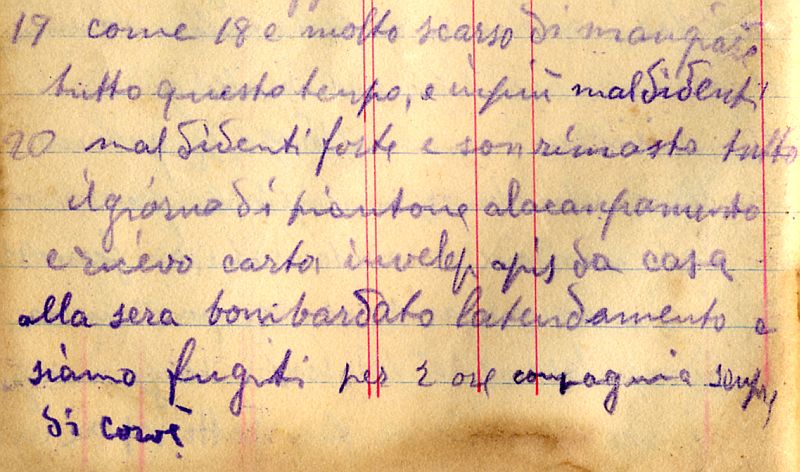 19 come 18 e molto scarso di mangiare
tutto questo tempo, e inpiù maldidenti
20 maldidenti forte e son rimasto tutto
il giorno di piantone alacanpamento
e ricevo carta invelop apis da casa
alla sera bombardato latendamento e
siamo fugiti per 2 ore compagnia sempre
di corvè